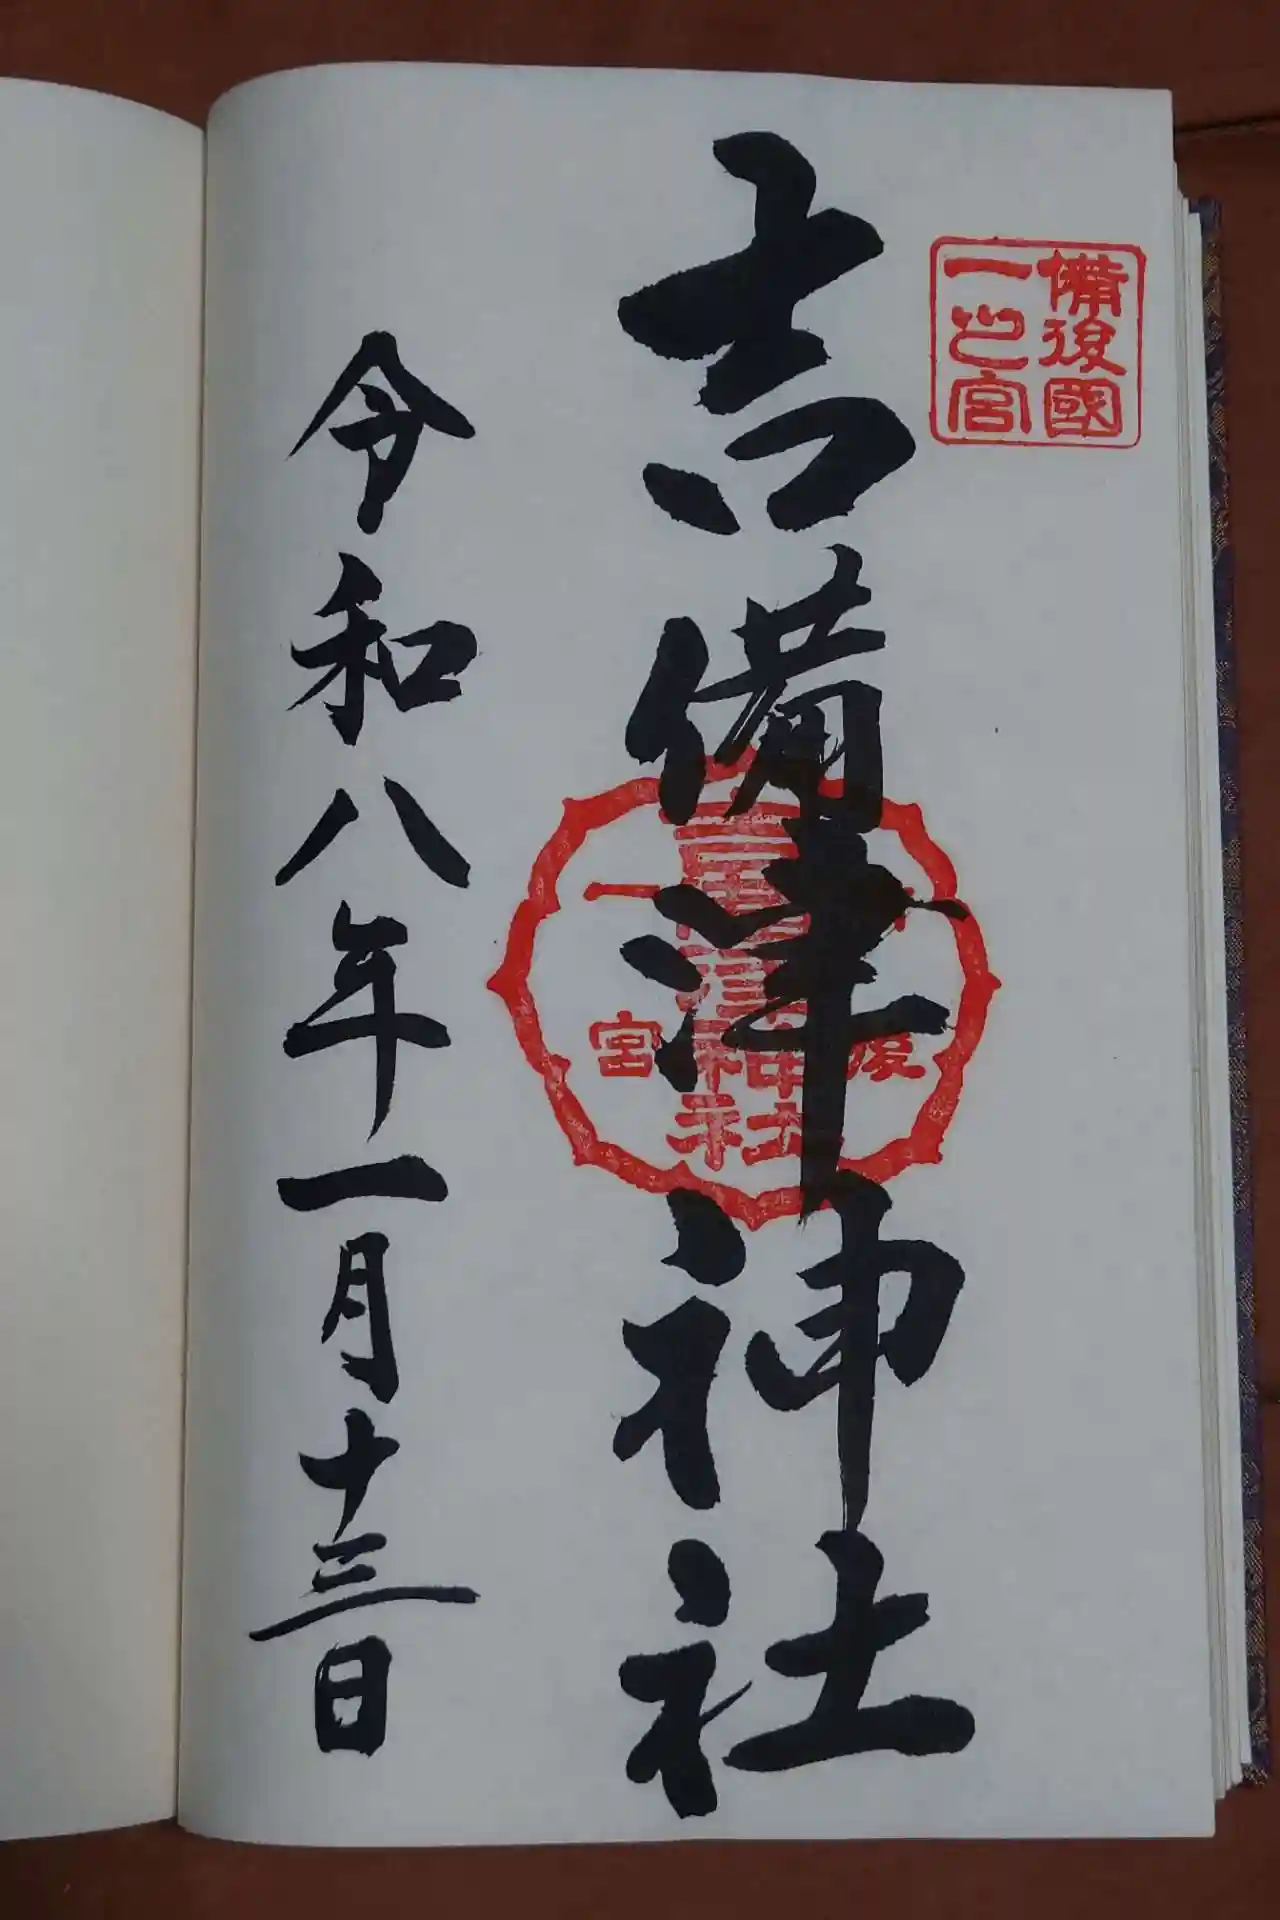 備後國
一之宮
吉備津神社
一
宮
後
神社
令和八年一月十三日